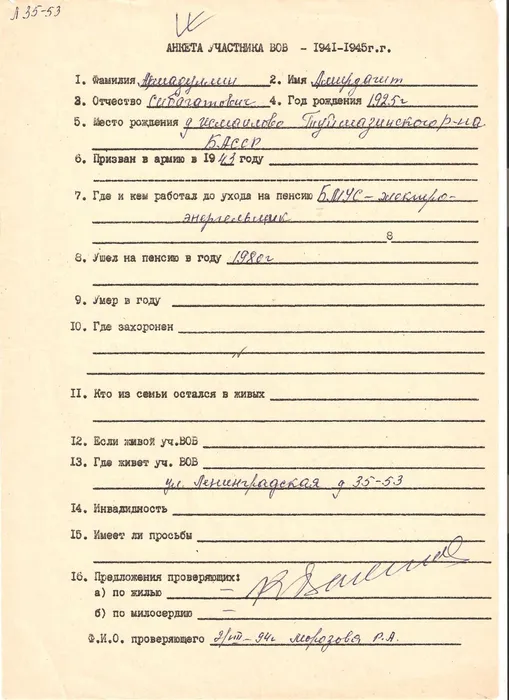 Л 35-53
АНКЕТА УЧАСТНИКА ВОВ - 1941-1945г.г.
1. Фамилия Ахмадуллин 2. Имя Амирдагит
3. Отчество Сибагатович 4. Год рождения 1925г
5. Место рождения д Исмаилово Туймазинского р-на
БАССР
6. Призван в армию в 1943 году
7. Где и кем работал до ухода на пенсию БМУС - электро-
8
8. Ушел на пенсию в году 1980г
9. Умер в году
10. Где захоронен
11. Кто из семьи остался в живых
12. Если живой уч.ВОВ
13. Где живет уч. ВОВ
ул. Ленинградская д 35-53
14. Инвалидность
15. Имеет ли просьбы
16. Предложения проверяющих:
а) по жилью —
б) по милосердию —
Ф.И.О. проверяющего 2/III-94г Морозова Р.А.